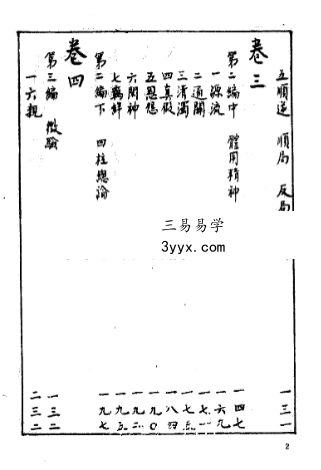 五順逆 順局 反局 一三一
卷三
第二編中 體用精神 一四七
一源流 一六九
二通關 一七一
三清濁 一七五
四真假 一八四
五恩怨 一九〇
六閑神 一九二
七羈絆 一九五
第二編下 四柱總論 一九七
卷四
第三編 徵驗 一三二
一六親 二三二
三易易学
3yyx.com
2